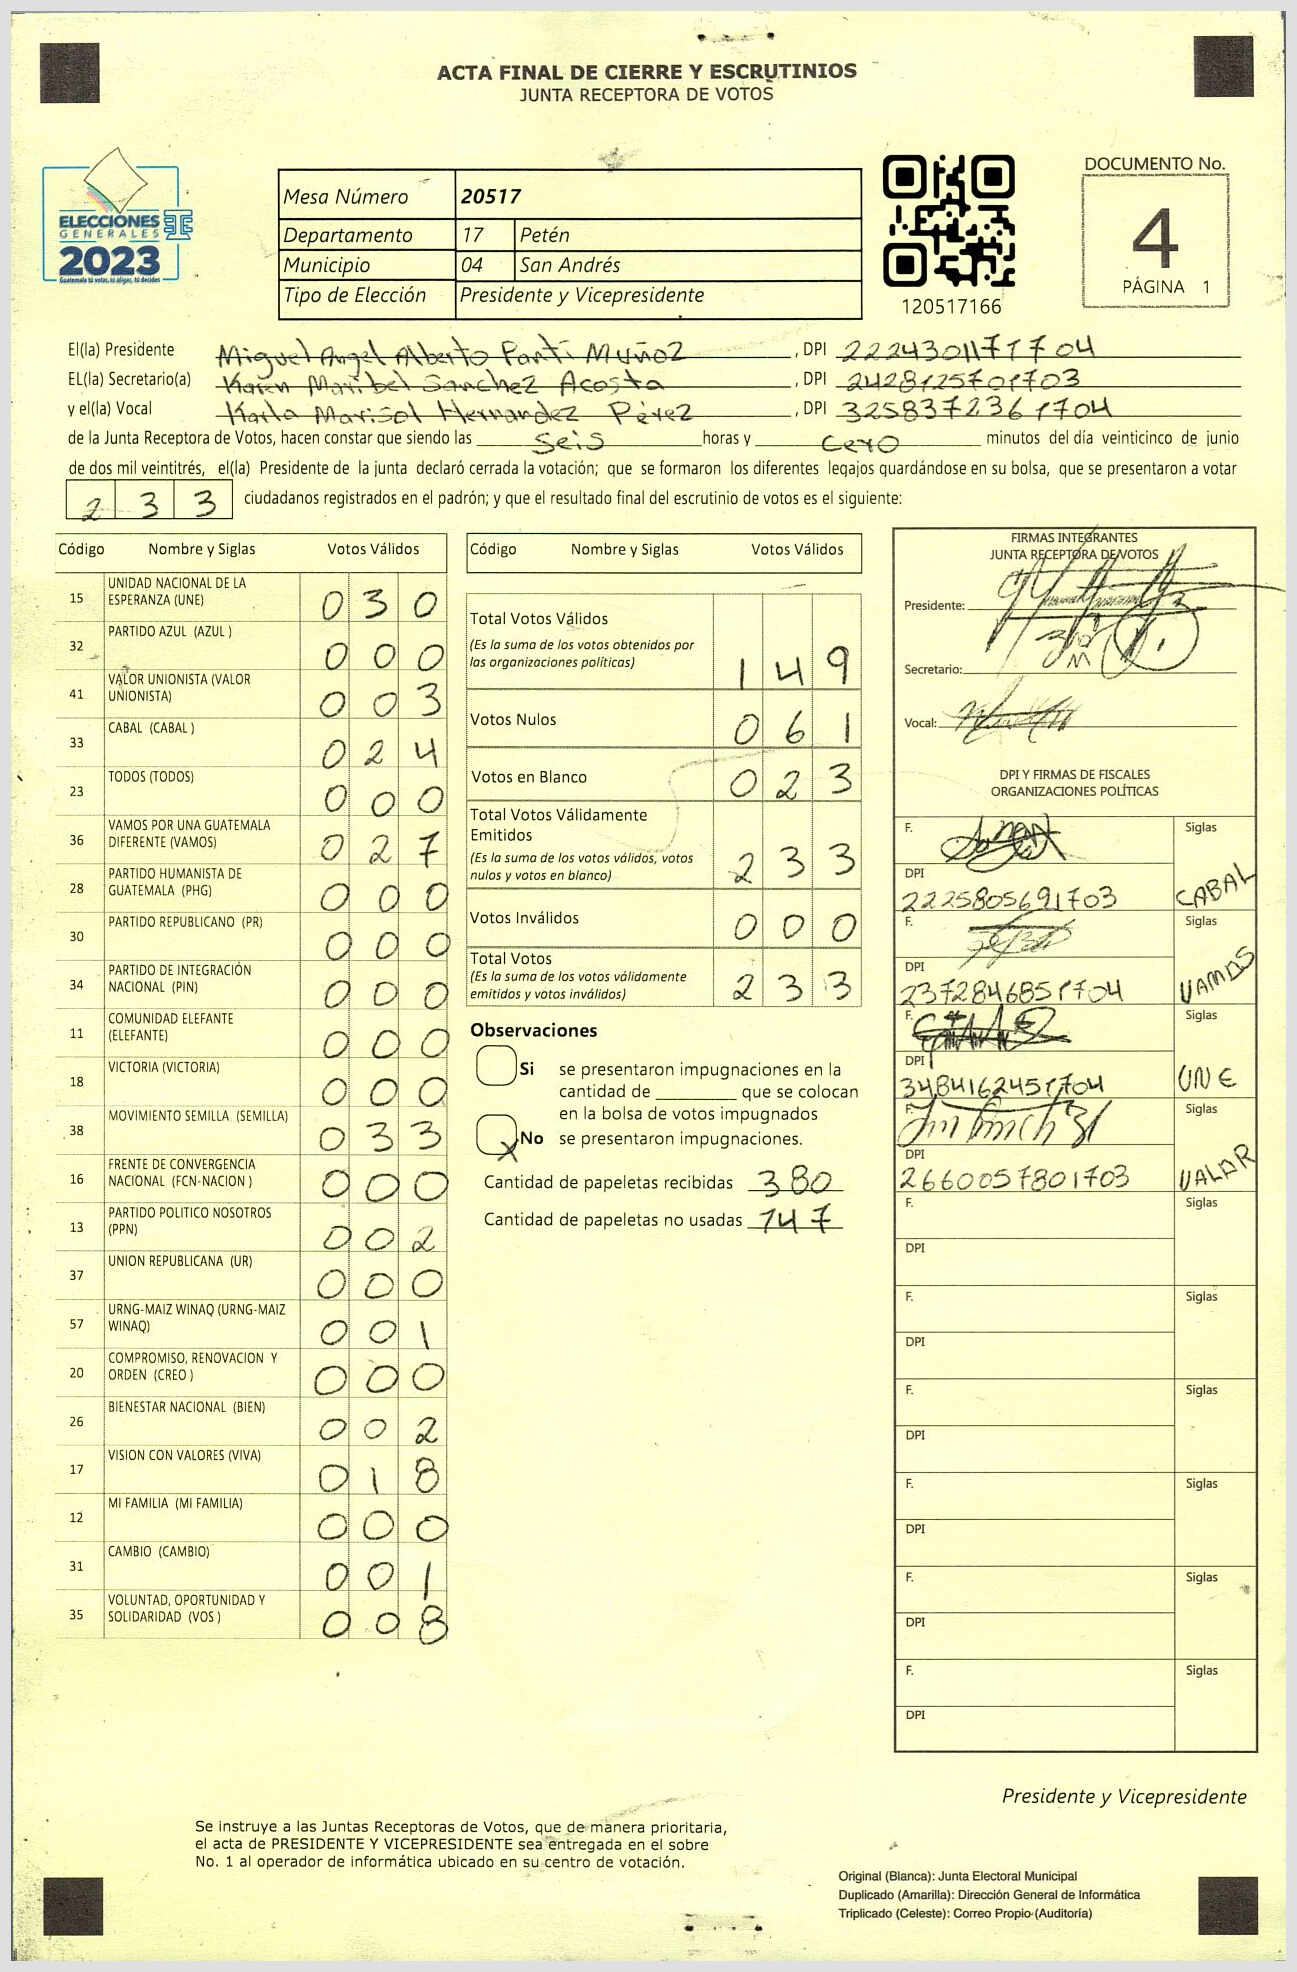 ACTA FINAL DE CIERRE Y ESCRUTINIOS
JUNTA RECEPTORA DE VOTOS
ELECCIONES
GENERALES
2023
Guatemala tú votas, tú eliges, tú decides
Mesa Número 20517
Departamento 17 Petén
Municipio 04 San Andrés
Tipo de Elección Presidente y Vicepresidente
120517166
DOCUMENTO No.
4
PÁGINA 1
El(la) Presidente Miguel Angel Alberto Panti Muñoz, DPI 2224301171704
EL(la) Secretario(a) Karen Maribel Sanchez Acosta, DPI 2428125701703
y el(la) Vocal Karla Marisol Hernandez Pérez, DPI 3258372361704
de la Junta Receptora de Votos, hacen constar que siendo las seis horas y cero minutos del día veinticinco de junio
de dos mil veintitrés, el(la) Presidente de la junta declaró cerrada la votación; que se formaron los diferentes legajos quardándose en su bolsa, que se presentaron a votar
233 ciudadanos registrados en el padrón; y que el resultado final del escrutinio de votos es el siguiente:
Código Nombre y Siglas Votos Válidos
15 UNIDAD NACIONAL DE LA
ESPERANZA (UNE) 030
32 PARTIDO AZUL (AZUL ) 000
41 VALOR UNIONISTA (VALOR
UNIONISTA) 003
33 CABAL (CABAL ) 024
23 TODOS (TODOS) 000
36 VAMOS POR UNA GUATEMALA
DIFERENTE (VAMOS) 027
28 PARTIDO HUMANISTA DE
GUATEMALA (PHG) 000
30 PARTIDO REPUBLICANO (PR) 000
34 PARTIDO DE INTEGRACIÓN
NACIONAL (PIN) 000
11 COMUNIDAD ELEFANTE
(ELEFANTE) 000
18 VICTORIA (VICTORIA) 000
38 MOVIMIENTO SEMILLA (SEMILLA) 033
16 FRENTE DE CONVERGENCIA
NACIONAL (FCN-NACION ) 000
13 PARTIDO POLITICO NOSOTROS
(PPN) 002
37 UNION REPUBLICANA (UR) 000
57 URNG-MAIZ WINAQ (URNG-MAIZ
WINAQ) 001
20 COMPROMISO, RENOVACION Y
ORDEN (CREO ) 000
26 BIENESTAR NACIONAL (BIEN) 002
17 VISION CON VALORES (VIVA) 018
12 MI FAMILIA (MI FAMILIA) 000
31 CAMBIO (CAMBIO) 001
35 VOLUNTAD, OPORTUNIDAD Y
SOLIDARIDAD (VOS ) 008
Código Nombre y Siglas Votos Válidos
Total Votos Válidos
(Es la suma de los votos obtenidos por
las organizaciones políticas) 149
Votos Nulos 061
Votos en Blanco 023
Total Votos Válidamente
Emitidos
(Es la suma de los votos válidos, votos
nulos y votos en blanco) 233
Votos Inválidos 000
Total Votos
(Es la suma de los votos válidamente
emitidos y votos inválidos) 233
Observaciones
Si se presentaron impugnaciones en la
cantidad de ________ que se colocan
en la bolsa de votos impugnados
X No se presentaron impugnaciones.
Cantidad de papeletas recibidas 380
Cantidad de papeletas no usadas 147
FIRMAS INTEGRANTES
JUNTA RECEPTORA DE VOTOS
Presidente:
Secretario:
Vocal:
DPI Y FIRMAS DE FISCALES
ORGANIZACIONES POLÍTICAS
F. Siglas
DPI
2225805691703 CABAL
F. Siglas
DPI
2372846851704 VAMOS
F. Siglas
DPI
3484162451704 UNE
F. Siglas
DPI
2660057801703 VALOR
F. Siglas
DPI
F. Siglas
DPI
F. Siglas
DPI
F. Siglas
DPI
F. Siglas
DPI
F. Siglas
DPI
Presidente y Vicepresidente
Se instruye a las Juntas Receptoras de Votos, que de manera prioritaria,
el acta de PRESIDENTE Y VICEPRESIDENTE sea entregada en el sobre
No. 1 al operador de informática ubicado en su centro de votación.
Original (Blanca): Junta Electoral Municipal
Duplicado (Amarilla): Dirección General de Informática
Triplicado (Celeste): Correo Propio (Auditoría)